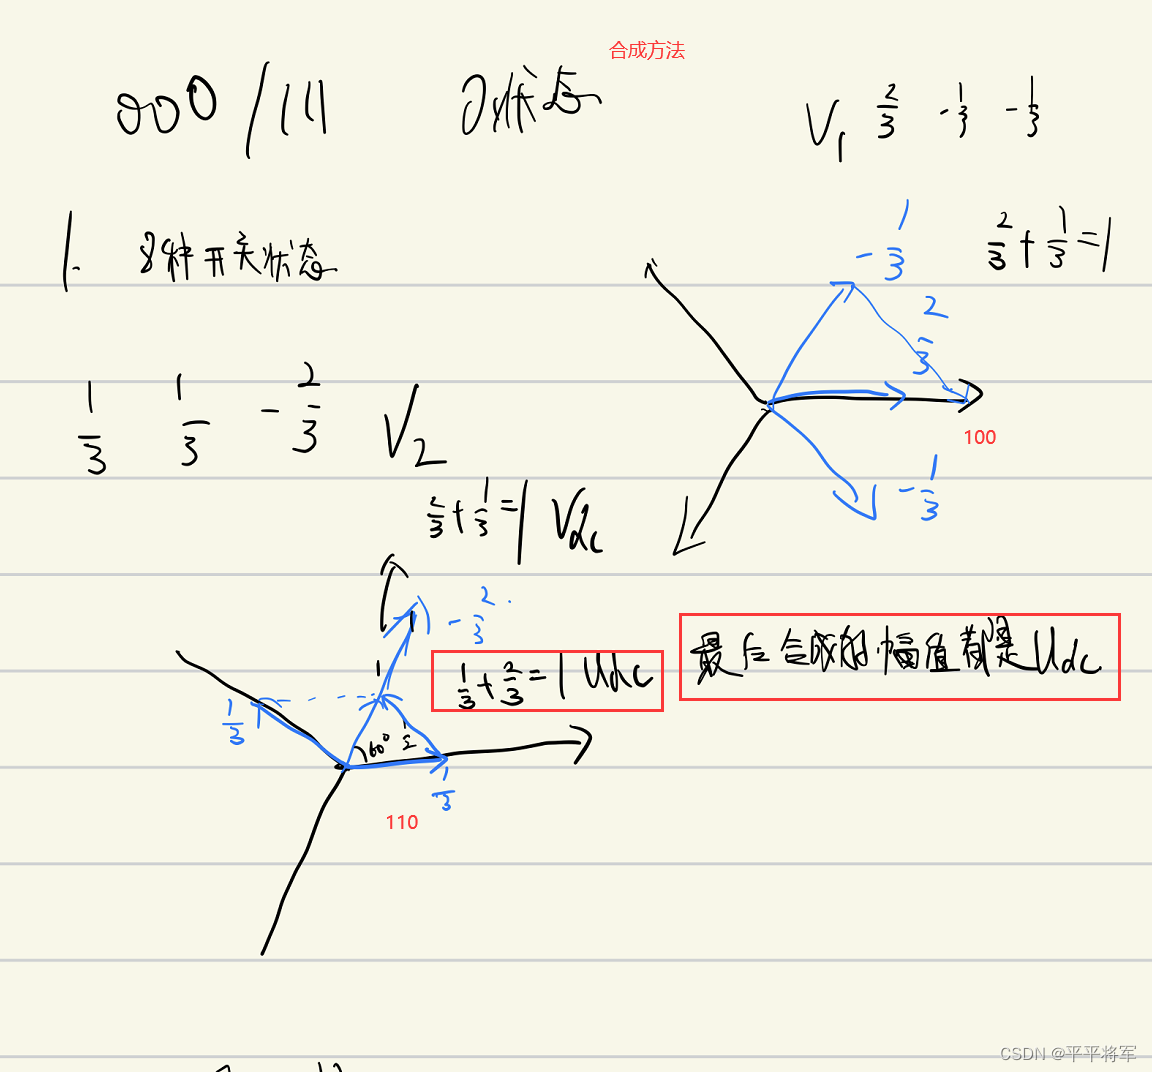 合成方法
000 / 111 0状态
V1 2/3 -1/3 -1/3
1. 8种开关状态
2/3 + 1/3 = 1
-1/3
2/3
100
-1/3
1/3 1/3 -2/3 V2
2/3 + 1/3 = 1 Vdc
-2/3
1/3 + 2/3 = 1 Udc
最后合成的幅值都是Udc
1/3
60°
1/3
110
CSDN @平平将军